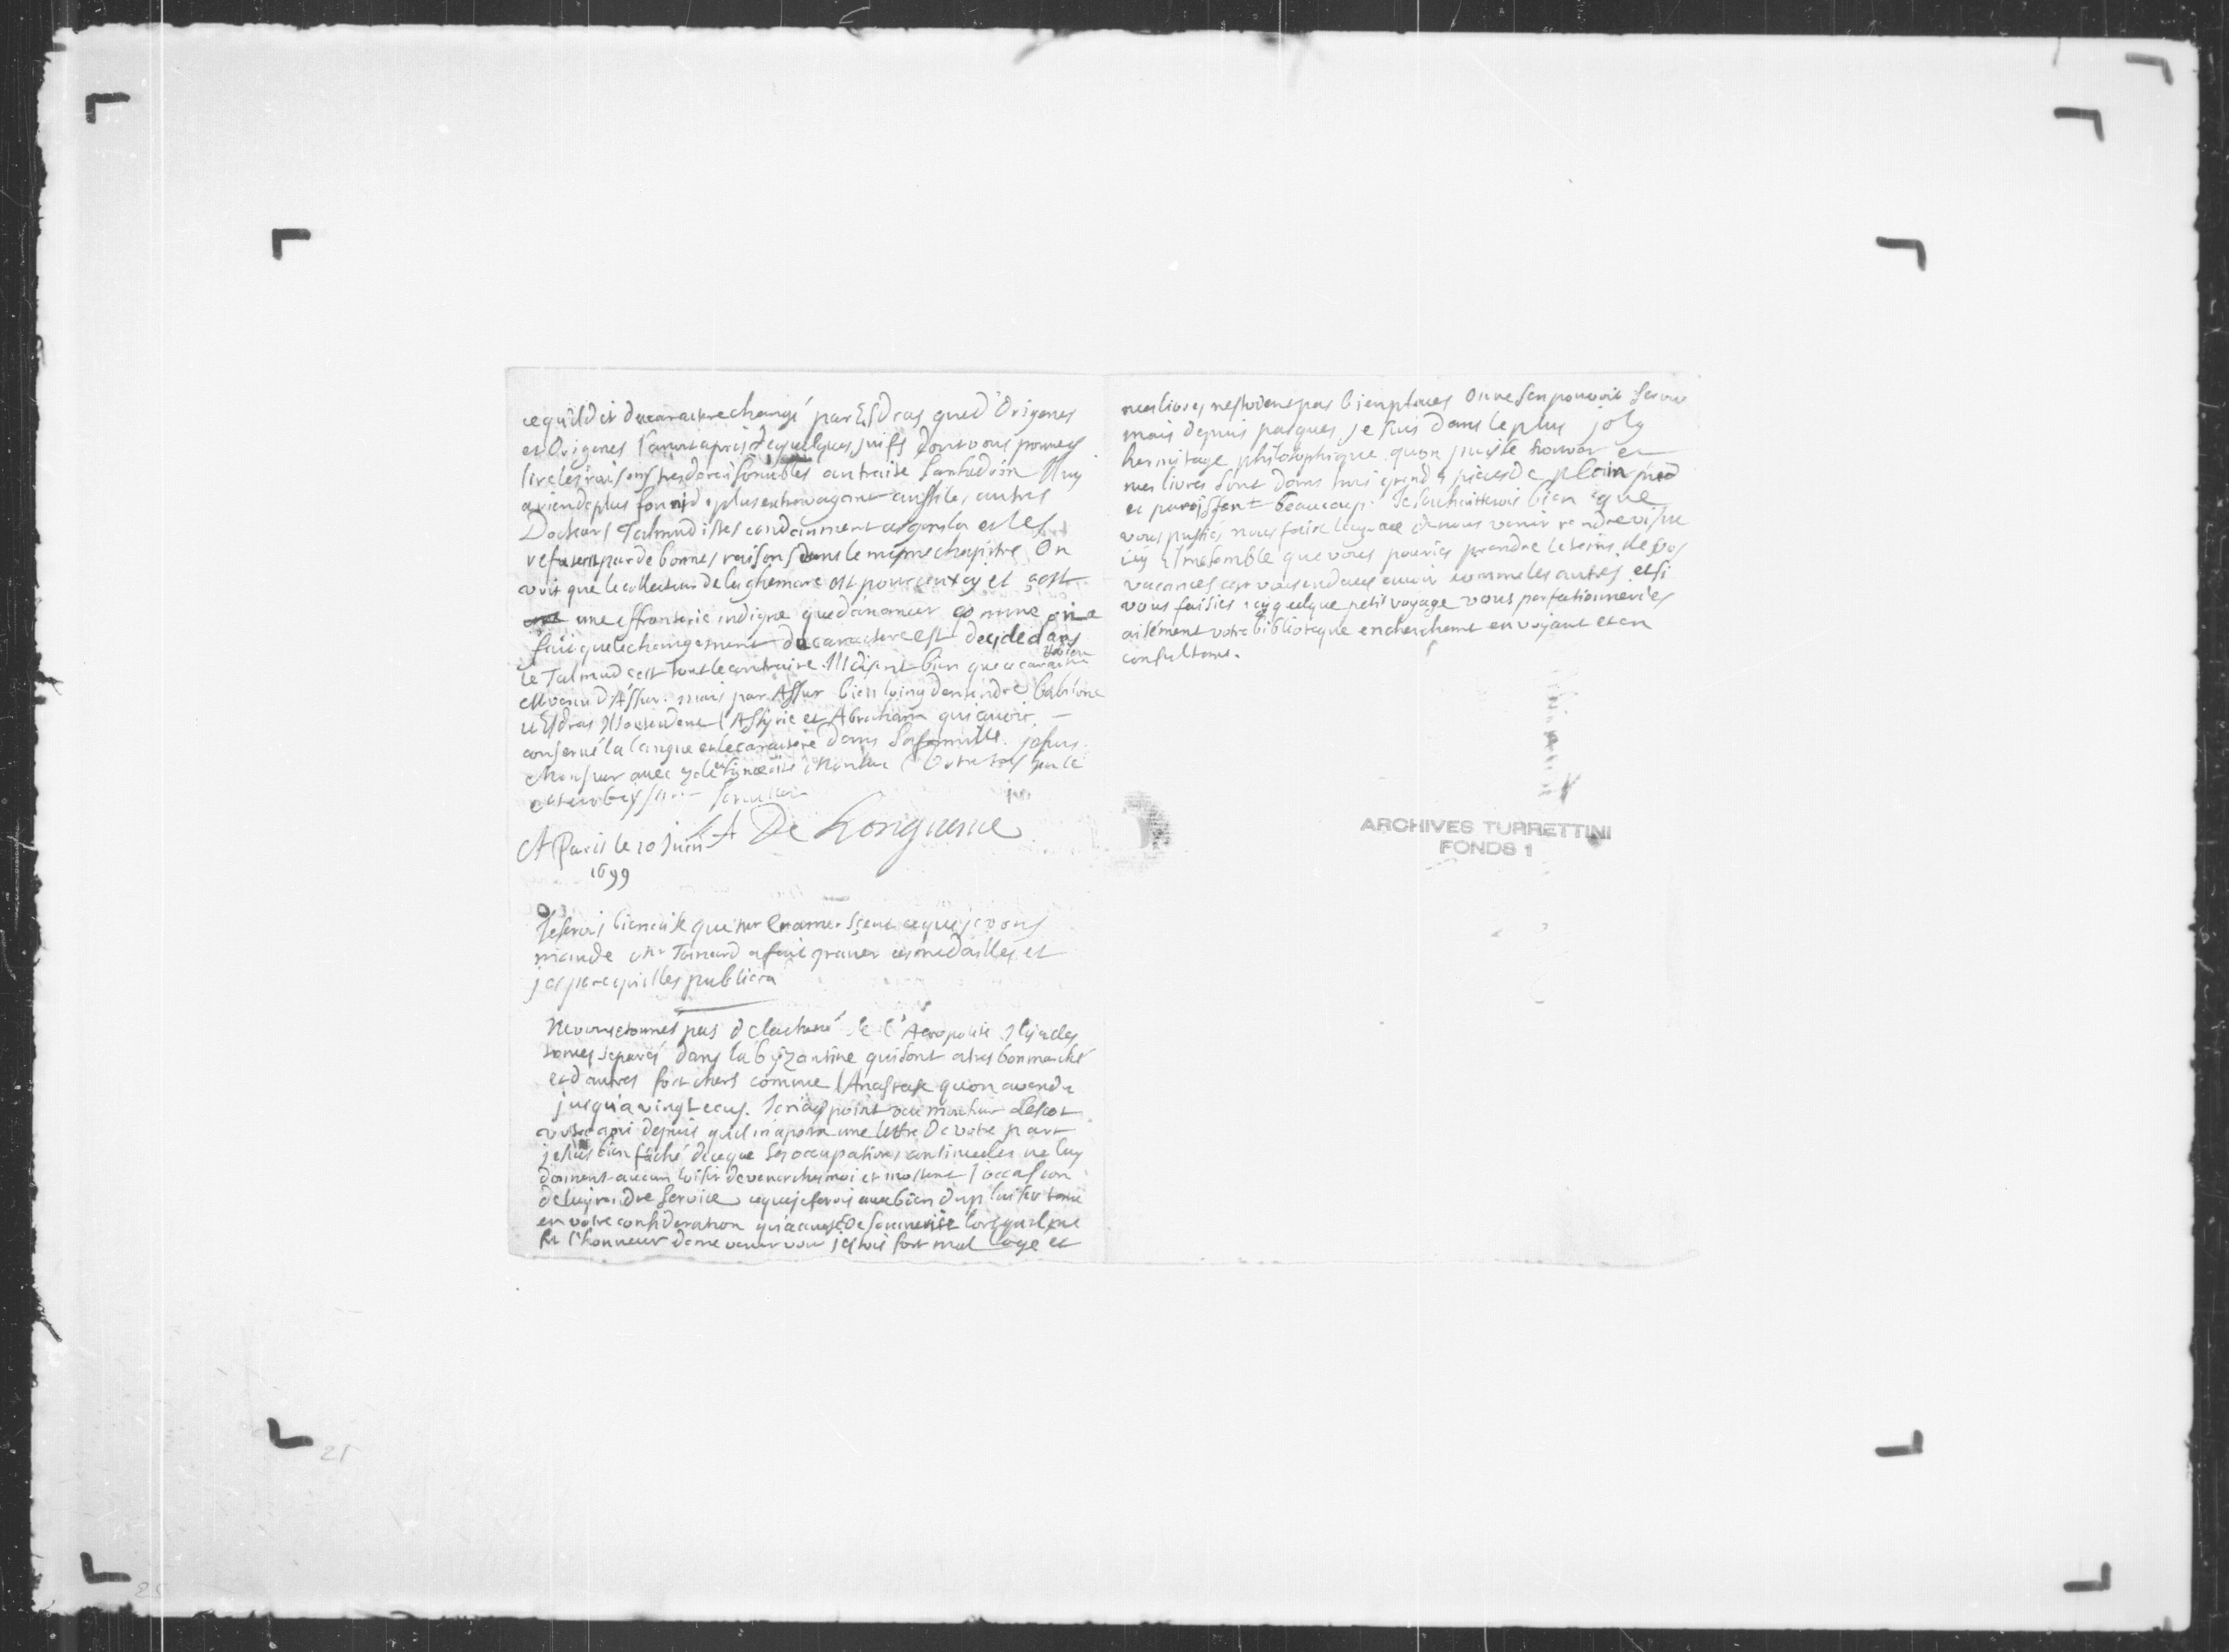 ce qu'il dit du caractere changé par Esdras que d'Origenes
et Origenes l'avoit apris de quelques juifs dont vous pourrez
lire les raisons tres deraisonnables au traité Sanhedrin Il ny
a rien de plus de plus extravagant aussi les autres
Docteurs Talmudistes condamnent ces gens la et les
refutent par de bonnes raisons dans le mesme chapitre On
voit que le collecteur de la ghemare est pour ceux cy et c'est
une effronterie indigne que d'avancer comme on a
fait que le changement du caractere est decidé dans
le Talmud c'est tout le contraire. Ils disent bien que ce caractere
est venu d'Assur. mais par Assur bien loing d'entendre babilone
et Esdras Ils entendent l'Assyrie et Abraham qui avoit
conservé la langue et le caractere dans sa famille. je suis
Monsieur avec votre tres humble
et tres obeissant serviteur
A Paris le 10 Juin De Longuerue
1699
Je serois bien aise que Mr sceut ce que je vous
mande Mr Toinard a fait graver ces medailles et
j'espere qu'il les publiera
Ne vous etonnés pas de la cherté de l'Acropolite Il y a des
tomes separés dans la byzantine qui sont a tres bon marché
et d'autres fort chers comme l'Anastase qu'on a vendu
jusqu'a vingt ecus. Je n'ay point veu monsieur Lescot
depuis qu'il m'aporta une lettre de votre part
je suis bien fâché de ce que ses occupations continuelles ne luy
donnent aucun loisir de venir chez moi et m'ostent l'occasion
de luy rendre service ce que je ferois avec bien du plaisir tant
en votre consideration qu'a cause de son merite lorsqu'il me
fit l'honneur de me venir voir j'estois fort mal logé et
mes livres n'estoient pas bien placés On ne s'en pouvoit servir
mais depuis pasques je suis dans le plus joly
hermitage philosophique qu'on puisse trouver et
mes livres sont dans trois grandes pieces de plain pied
et paroissent beaucoup. Je souhaitterois bien que
vous pussiés nous faire la grace de nous venir rendre visite
icy Il me semble que vous pouriés prendre le tems de vos
vacances car vous en devez avoir comme les autres et si
vous faisiés icy quelque petit voyage vous perfectionneriés
aisément votre biblioteque en cherchant en voyant et en
consultant.
ARCHIVES TURRETTINI
FONDS 1
21
25